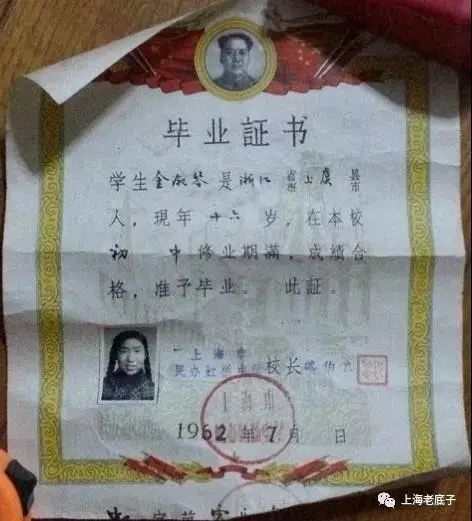 毕业証书
学生金淑琴是浙江省市上虞县市
人，現年十六岁，在本校
初 中修业期滿，成績合
格，准予毕业。此証。
上海市
民办 校长
1962年7月 日
上海老底子